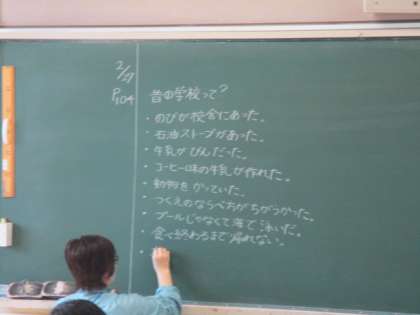 2/27
P104
昔の学校って?
・のびが校舎にあった。
・石油ストーブがあった。
・牛乳がびんだった。
・コーヒー味の牛乳が作れた。
・動物をかっていた。
・つくえのならべちがちがうかった。
・プールじゃなくて海で泳いだ。
・食べ終わるまで帰れない。
・